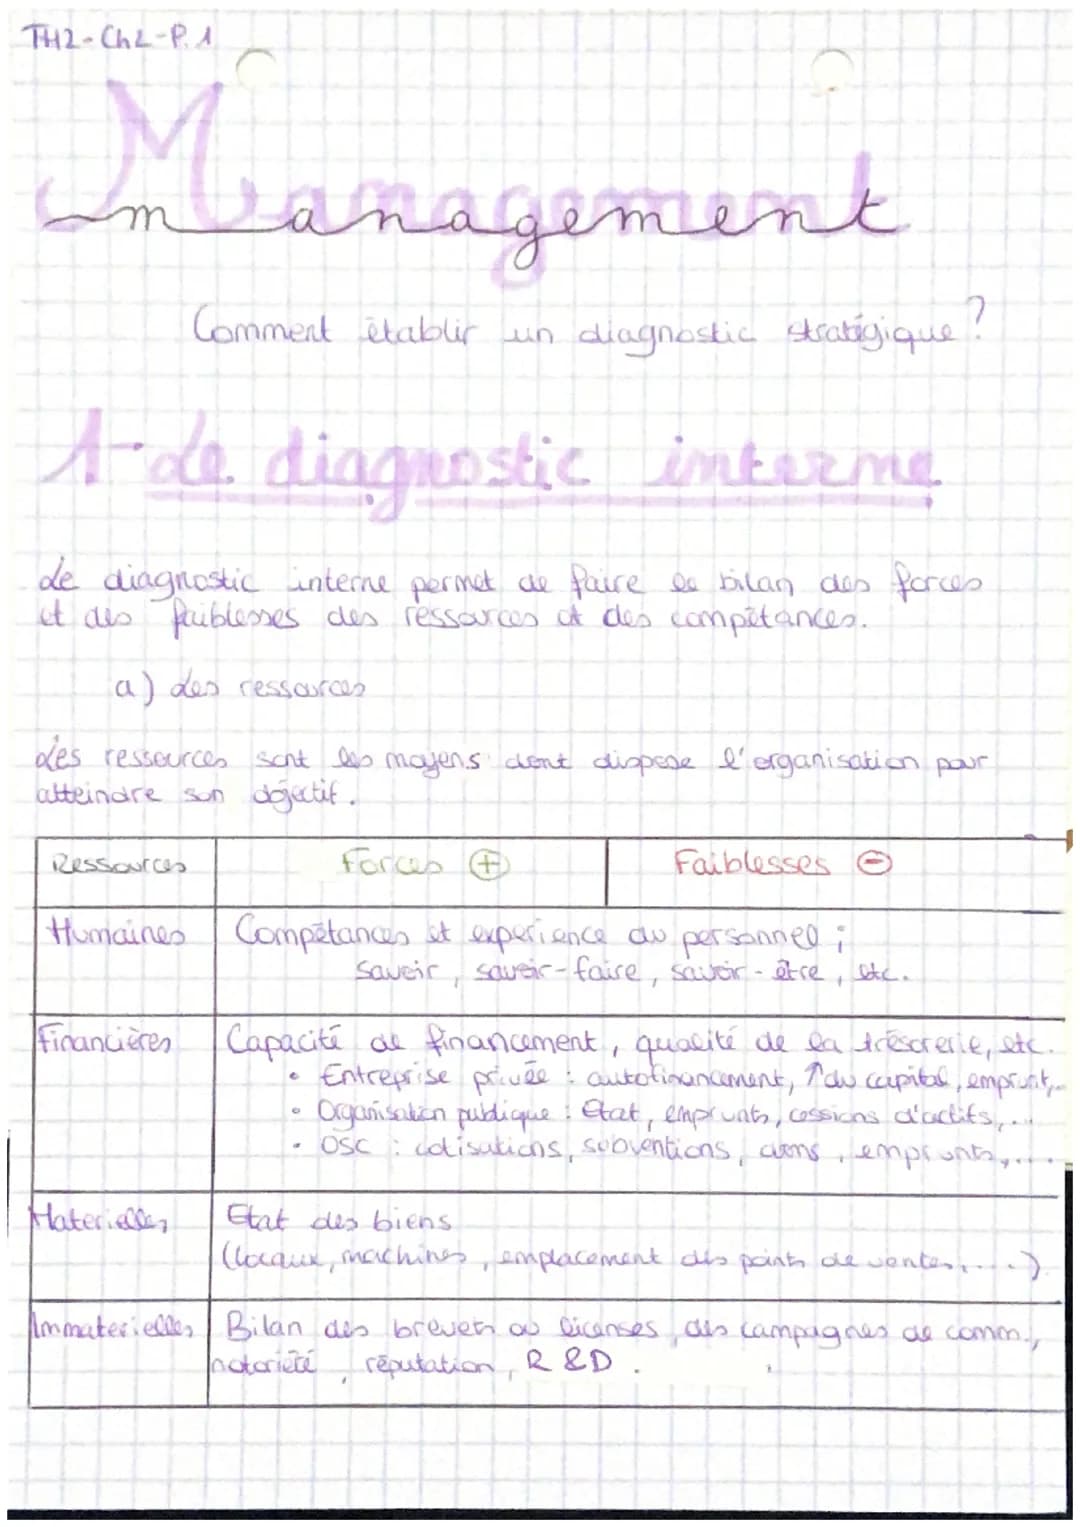 TH2-Ch2-P.1
Management
management
Comment établir un diagnostic stratégique ?
1- Le diagnostic interne
Le diagnostic interne permet de faire le bilan des forces
et des faiblesses des ressources et des compétances.
a) Les ressources
Les ressources sont les moyens dont dispose l'organisation pour
atteindre son objectif.
Ressources Forces + Faiblesses -
Humaines Compétances et experience du personnel ;
savoir, savoir-faire, savoir-être, etc.
Financières Capacité de financement, qualité de la trésorerie, etc.
• Entreprise privée : autofinancement, ↑ du capital, emprunt,...
• Organisation publique : Etat, emprunts, cessions d'actifs,...
• OSC : cotisations, subventions, dons, emprunts,....
Materielles Etat des biens
(locaux, machines, emplacement des points de ventes,....)
Immaterielles Bilan des brevets ou licenses, des campagnes de comm.,
notoriété, réputation, R&D.